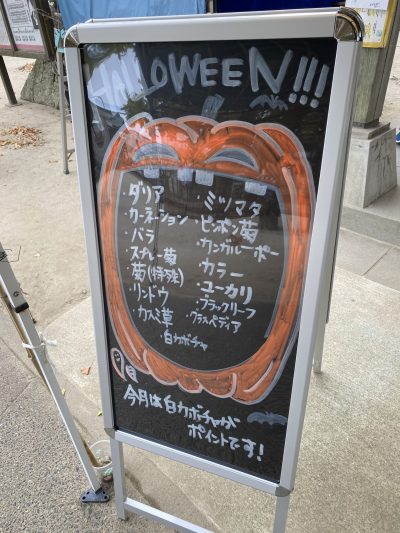 HALLOWEEN!!!
・ダリア
・カーネーション
・バラ
・スプレー菊
・菊(特殊)
・リンドウ
・カスミ草
・ミツマタ
・ピンポン菊
・カンガルーポー
・カラー
・ユーカリ
・ブラックリーフ
・グラスペディア
・白カボチャ
今月は白カボチャが
ポイントです!